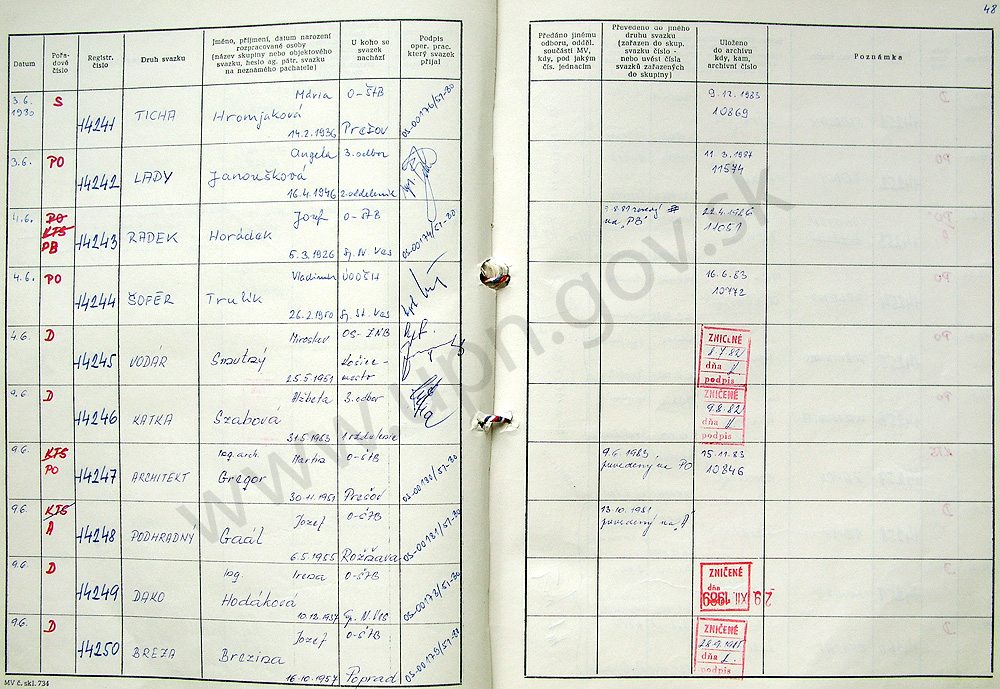 48
Datum
Pořa-
dové
číslo
Registr.
číslo
Druh svazku
Jméno, příjmení, datum narození
rozpracované osoby
(název skupiny nebo objektového
svazku, heslo ag. pátr. svazku
na neznámého pachatele)
U koho se
svazek
nachází
Podpis
oper. prac.
který svazek
přijal
Předáno jinému
odboru, odděl.
součásti MV,
kdy, pod jakým
čís. jednacím
Převedeno do jiného
druhu svazku
(zařazen do skup.
svazku číslo -
nebo uvést čísla
svazků zařazených
do skupiny)
Uloženo
do archivu
kdy, kam,
archivní číslo
Poznámka
3.6.
1980
S
14241
TICHA
Mária
Hromjaková
14.2.1936
O-ŠtB
Prešov
OS-00176/51-80
9.12.1983
10869
3.6.
PO
14242
LADY
Angela
Janoušková
16.4.1946
3. odbor
2. oddelenie
11.3.1987
11574
4.6.
PO
KTS
PB
14243
RADEK
Jozef
Horádek
5.3.1926
O-ŠtB
Sp. N. Ves
OS-00174/51-80
na "PB"
22.4.1986
4.6.
PO
14244
ŠOFÉR
Vladimír
Trulik
26.2.1950
Sp. St. Ves
16.6.83
4.6.
D
14245
VODÁR
Miroslav
25.5.1951
ZNIČENÉ
dňa
podpis
9.6.
D
14246
KATKA
Alžbeta
Szabová
31.5.1953
3. odbor
1. oddelenie
ZNIČENÉ
9.8.82
dňa
podpis
9.6.
KTS
PO
14247
ARCHITEKT
Ing. arch.
Martin
Gregor
30.11.1951
O-ŠtB
Prešov
OS-00180/51-80
9.6.1983
prevedený na PO
15.11.83
10846
9.6.
KTS
A
14248
PODHRADNÝ
Jozef
Gaál
6.5.1955
O-ŠtB
Rožňava
OS-00181/51-80
13.10.1981
prevedený na "A"
9.6.
D
14249
DAKO
Ing.
Irena
Hodáková
10.12.1957
O-ŠtB
Sp. N. Ves
OS-00178/51-80
ZNIČENÉ
29. XII. 1989
9.6.
D
14250
BREZA
Jozef
Brezina
16.10.1957
O-ŠtB
Poprad
OS-00179/51-80
ZNIČENÉ
dňa
podpis
MV č. skl. 734
www.upn.gov.sk